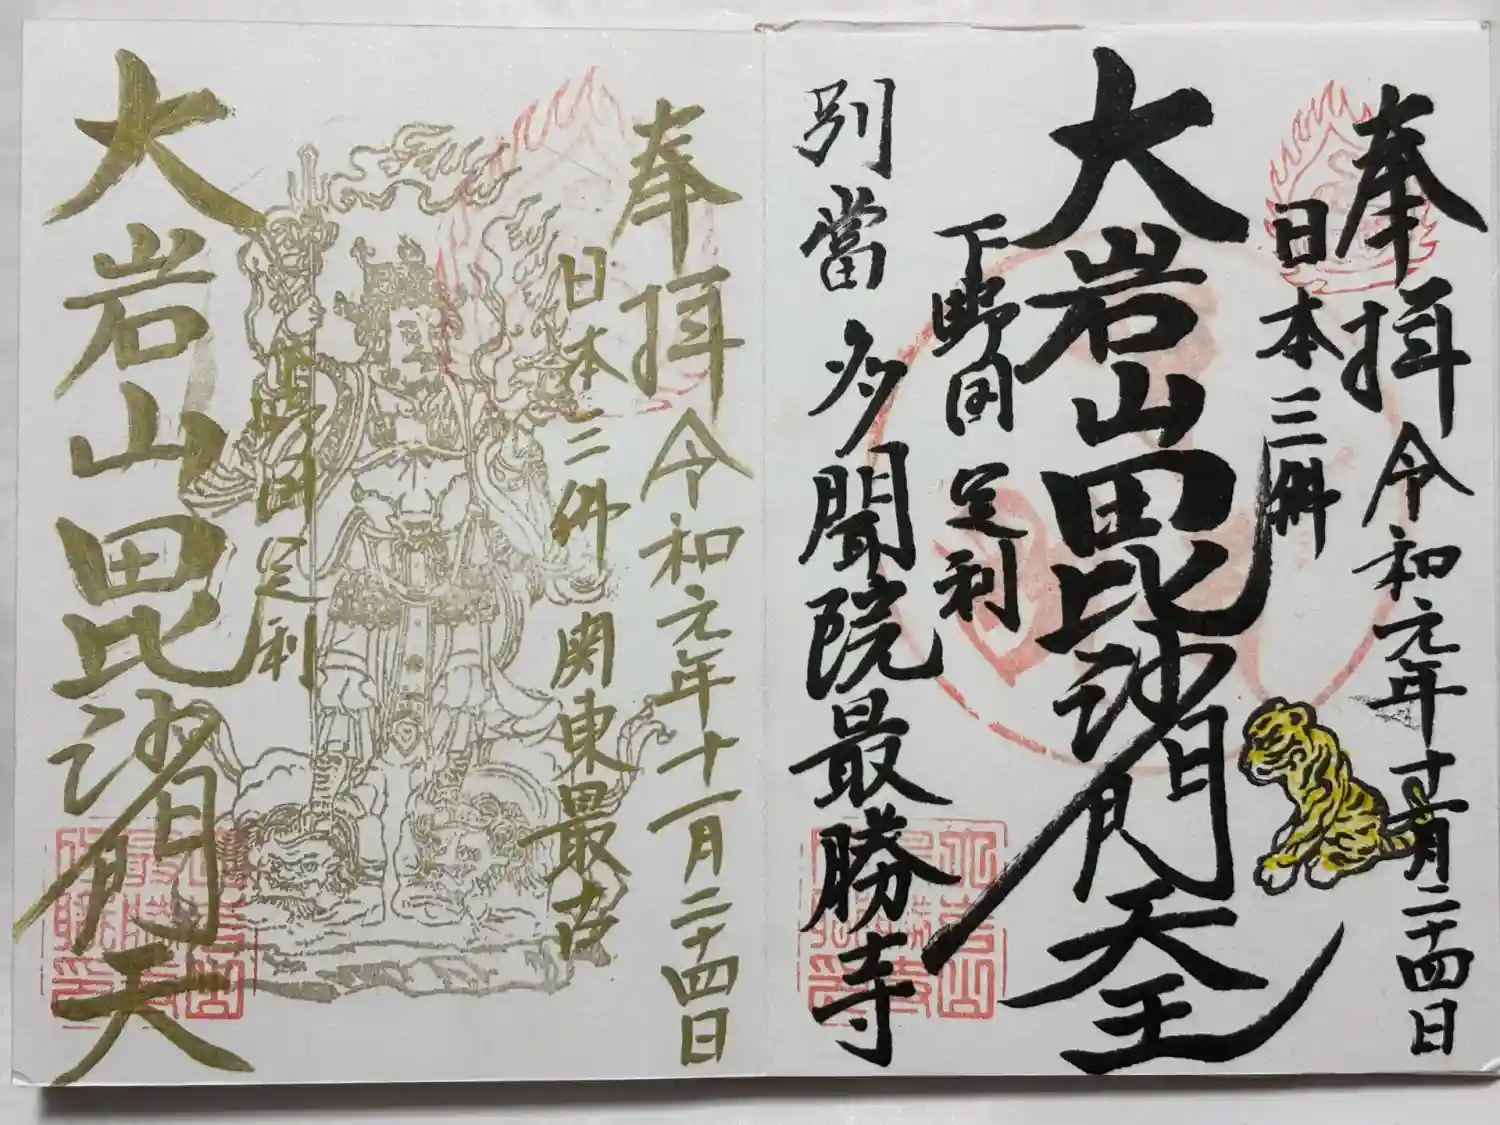 奉拝 令和元年十一月二十四日
日本三
大岩山毘沙門天王
下野国 足利
別當 多聞院最勝寺
奉拝 令和元年十一月二十四日
日本三 関東最古
下野国 足利
大岩山毘沙門天